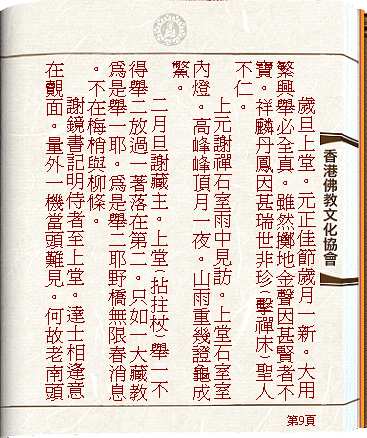 歲旦上堂。元正佳節歲月一新。大用
繁興舉必全真。雖然擲地金聲因甚賢者不
寶。祥麟丹鳳因甚瑞世非珍(擊禪床)聖人
不仁。
上元謝禪石室雨中見訪。上堂石室室
內燈。高峰峰頂月一夜。山雨重幾證龜成
鱉。
二月旦謝藏主。上堂(拈拄杖)舉一不
得舉二放過一著落在第二。只如一大藏教
為是舉一耶。為是舉二耶野橋無限春消息
。不在梅梢與柳條。
謝鏡書記明侍者至上堂。達士相逢意
在覿面。量外一機當頭難見。何故老南頭
香港佛教文化協會
第9頁